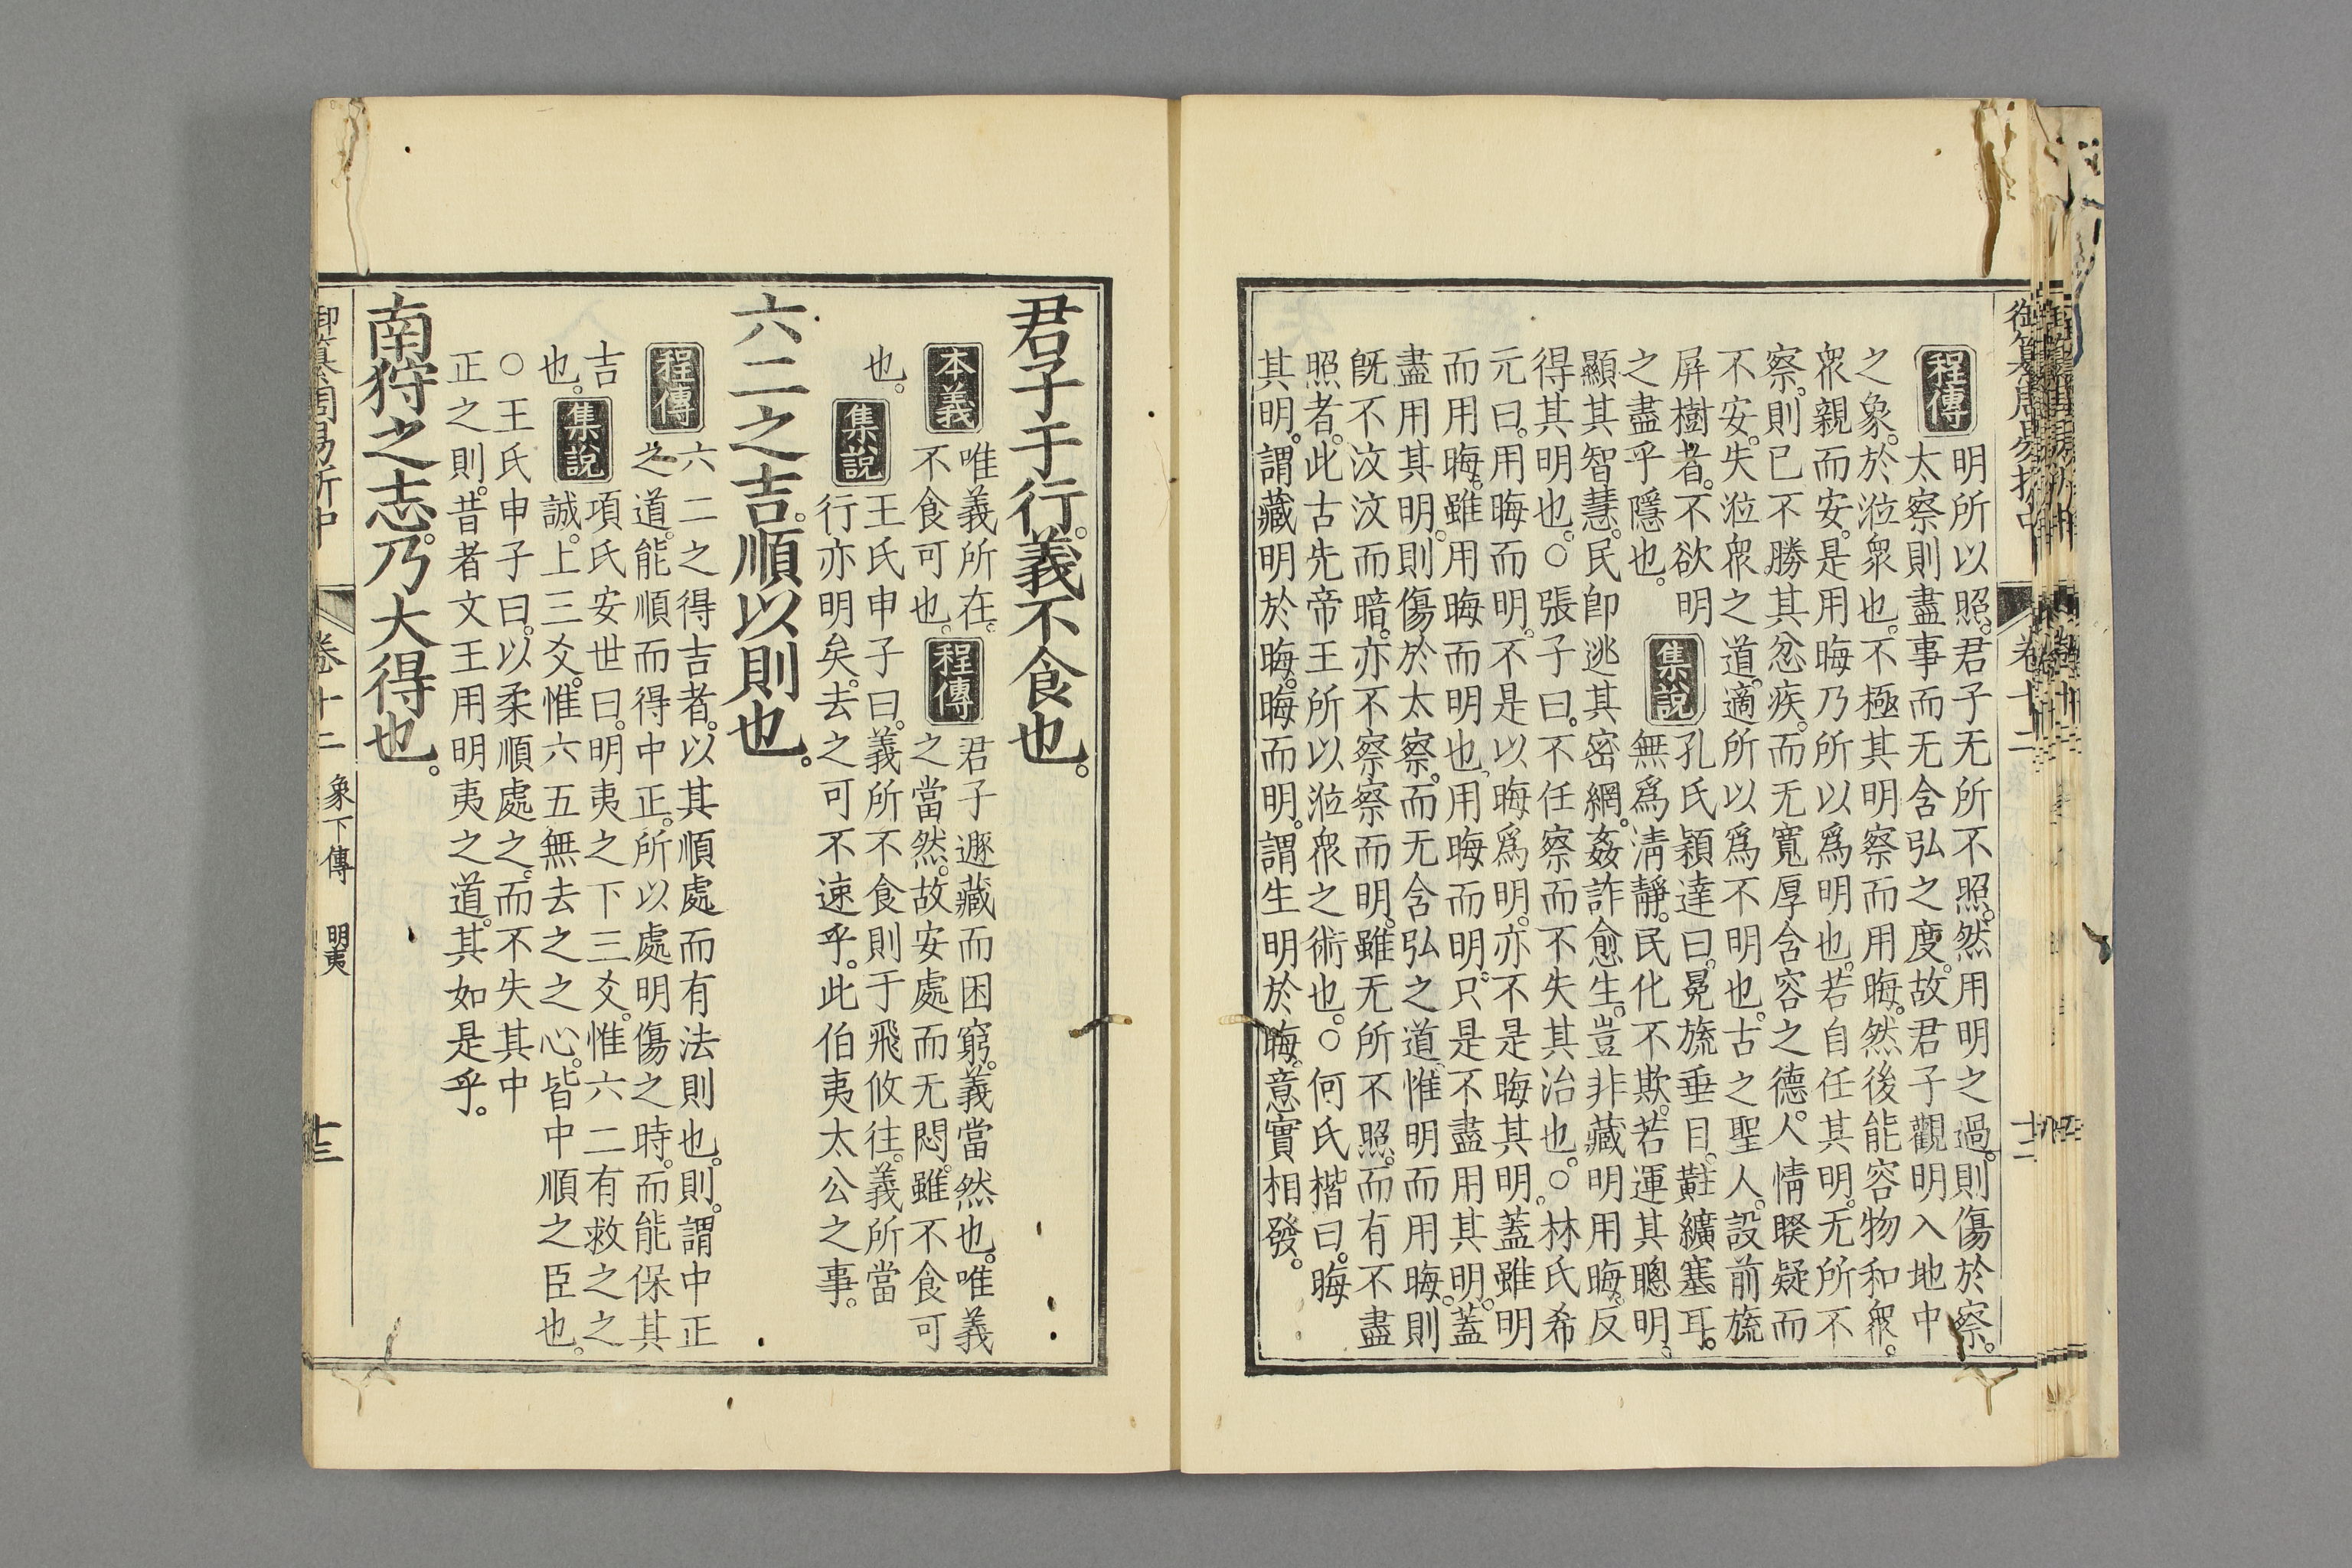 御纂周易折中 卷十二 十二
程傳 明所以照。君子无所不照。然用明之過。則傷於察。
太察則盡事而无含弘之度。故君子觀明入地中
之象。於涖衆也。不極其明察而用晦。然後能容物和衆。
衆親而安。是用晦乃所以爲明也。若自任其明。无所不
察。則已不勝其忿疾。而无寬厚含容之德。人情睽疑而
不安。失涖衆之道。適所以爲不明也。古之聖人。設前旒
屏樹者。不欲明
之盡乎隱也。
集說 孔氏穎達曰。冕旒垂目。黈纊塞耳。
無爲淸靜。民化不欺。若運其聰明。
顯其智慧。民卽逃其密網。姦詐愈生。豈非藏明用晦。反
得其明也。○張子曰。不任察而不失其治也。○林氏希
元曰。用晦而明。不是以晦爲明。亦不是晦其明。蓋雖明
而用晦。雖用晦而明也。用晦而明。只是不盡用其明。蓋
盡用其明。則傷於太察。而无含弘之道。惟明而用晦。則
旣不汶汶而暗。亦不察察而明。雖无所不照。而有不盡
照者。此古先帝王所以涖衆之術也。○何氏楷曰。晦
其明。謂藏明於晦。晦而明。謂生明於晦。意實相發。
君子于行。義不食也。
本義 唯義所在。
不食可也。
程傳 君子遯藏而困窮。義當然也。唯義
之當然。故安處而无悶。雖不食可
也。
集說 王氏申子曰。義所不食則于飛攸往。義所當
行亦明矣。去之可不速乎。此伯夷太公之事。
六二之吉。順以則也。
程傳 六二之得吉者。以其順處而有法則也。則。謂中正
之道。能順而得中正。所以處明傷之時。而能保其
吉
也。
集說 項氏安世曰。明夷之下三爻。惟六二有救之之
誠。上三爻。惟六五無去之之心。皆中順之臣也。
○王氏申子曰。以柔順處之。而不失其中
正之則。昔者文王用明夷之道。其如是乎。
南狩之志。乃大得也。
御纂周易折中 卷十二 象下傳 明夷 十三